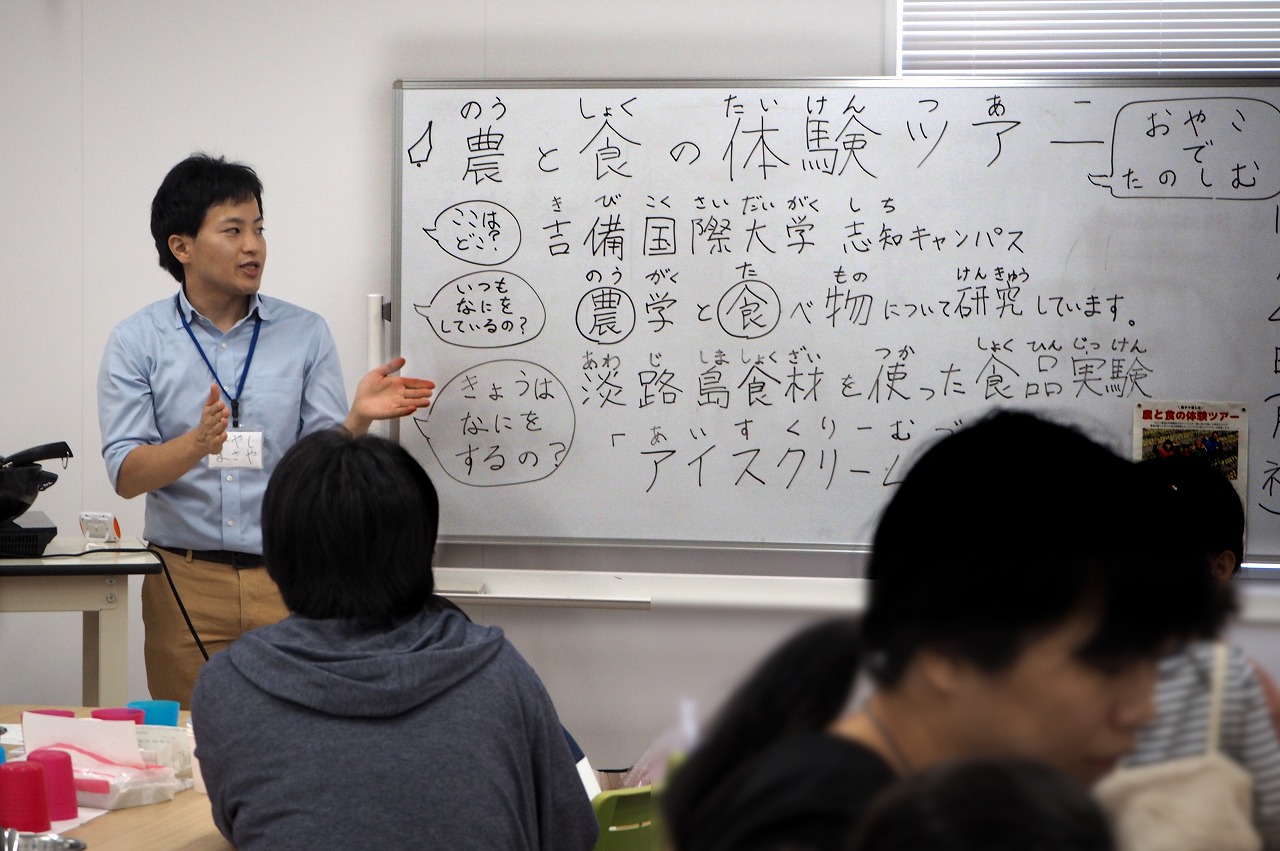 のう しょく たい けん つ あ ー
農と食の体験ツアー
おやこ
で
たのしむ
ここは
どこ?
き び こく さい だい がく し ち
吉備国際大学 志知キャンパス
いつも
なにを
しているの?
のう がく た もの けんきゅう
農学と食べ物について研究しています。
きょうは
なにを
するの?
あわ じ しま しょく ざい つか しょく ひん じっ けん
淡路島食材を使った食品実験
あ い す く り ー む
「アイスクリーム
農と食の体験ツアー